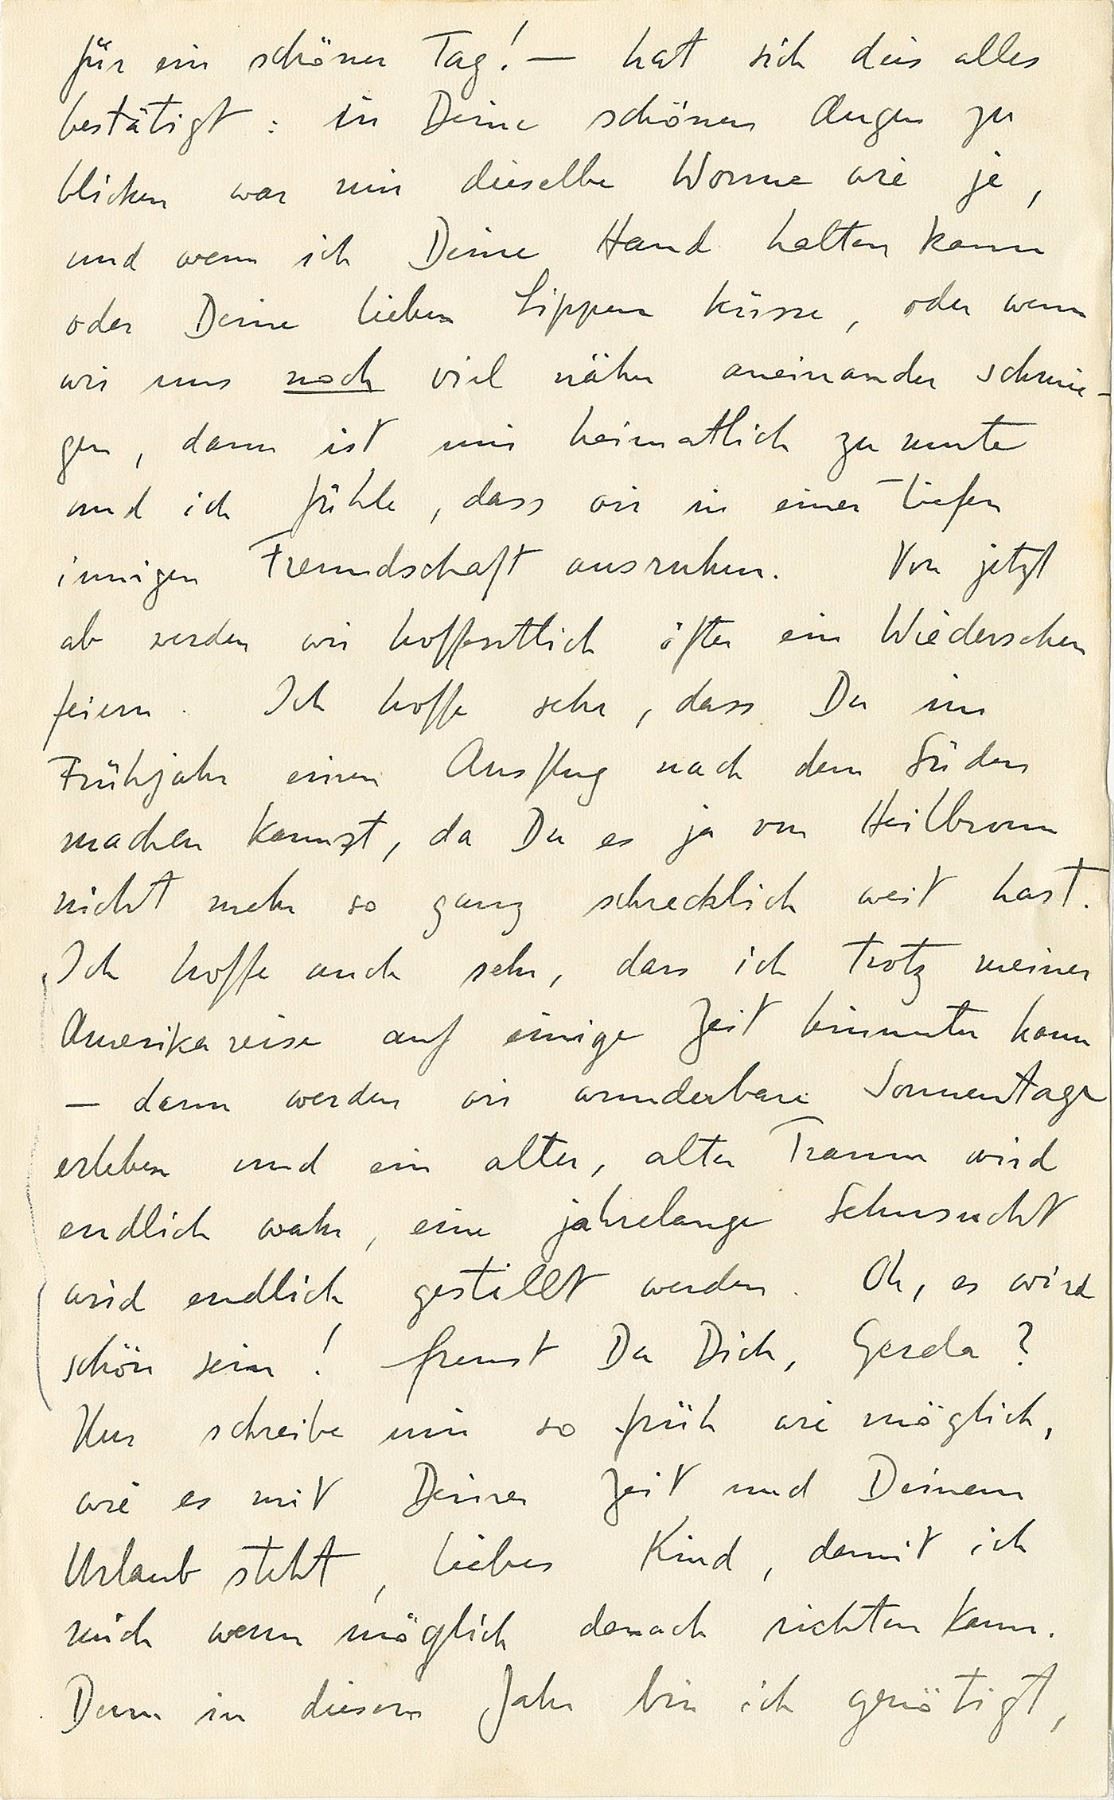 für ein schöner Tag! — hat sich dies alles
bestätigt : in Deine schönen Augen zu
blicken war mir dieselbe Wonne wie je,
und wenn ich Deine Hand halten kann
oder Deine lieben Lippen küsse, oder wenn
wir uns noch viel näher aneinander schmie-
gen, dann ist mir heimatlich zu mute
und ich fühle, dass wir in einer tiefen
innigen Freundschaft ausruhen. Von jetzt
ab werden wir hoffentlich öfter ein Wiedersehen
feiern. Ich hoffe sehr, dass Du im
Frühjahr einen Ausflug nach dem Süden
machen kannst, da Du es ja von Heilbronn
nicht mehr so ganz schrecklich weit hast.
Ich hoffe auch sehr, dass ich trotz meiner
Amerikareise auf einige Zeit hinunter kann
— dann werden wir wunderbare Sonnentage
erleben und ein alter, alter Traum wird
endlich wahr, eine jahrelange Sehnsucht
wird endlich gestillt werden. Oh, es wird
schön sein! Freust Du Dich, Gerda?
Nur schreibe mir so früh wie möglich,
wie es mit Deiner Zeit und Deinem
Urlaub steht, liebes Kind, damit ich
mich wenn möglich danach richten kann.
Denn in diesem Jahr bin ich genötigt,